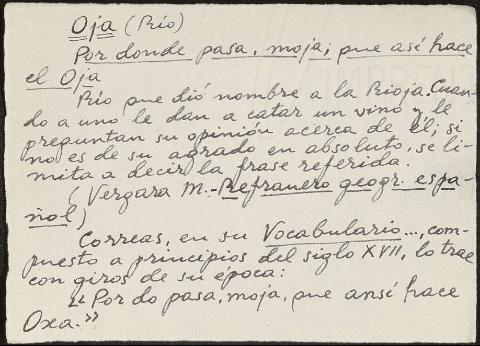 Oja (Río)
Por donde pasa, moja; que así hace
el Oja
Río que dió nombre a la Rioja. Cuan-
do a uno le dan a catar un vino y le
preguntan su opinión acerca de él; si
no es de su agrado en absoluto, se li-
mita a decir la frase referida.
(Vergara M.-Refranero geogr. espa-
ñol)
Correas, en su Vocabulario..., com-
puesto a principios del siglo XVII, lo trae
con giros de su época:
"Por do pasa, moja, que ansí hace
Oxa."